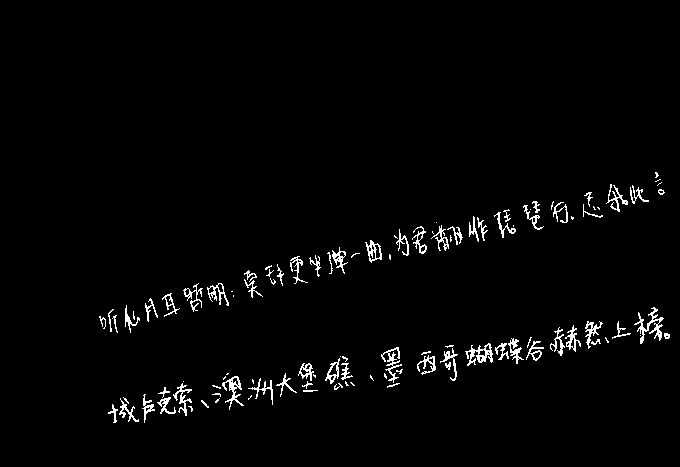 听仙月耳暂明:莫辞更坐弹一曲,为君翻作琵琶行.感我此言
城卢克索、澳洲大堡礁、墨西哥蝴蝶谷赫然上榜。